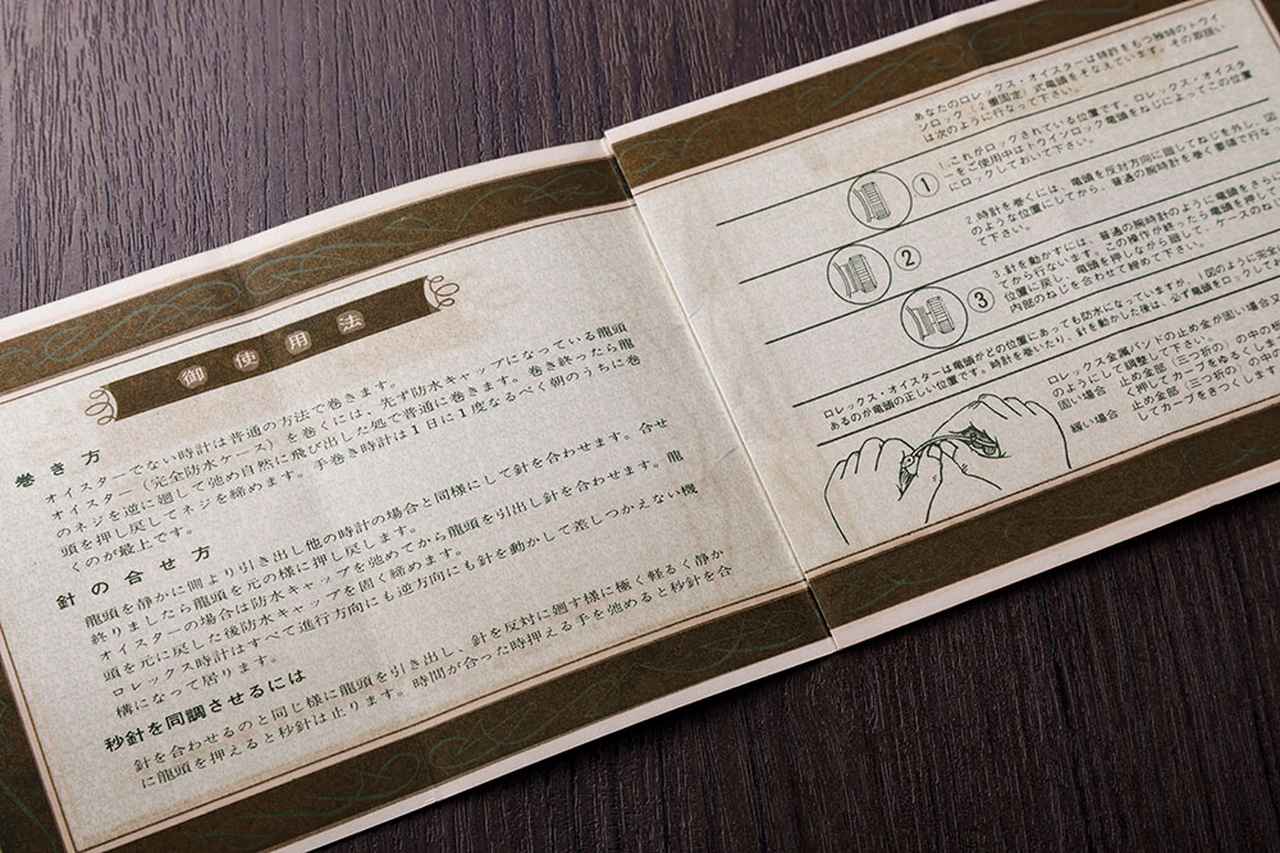 御使用法
巻き方
オイスターでない時計は普通の方法で巻きます。
オイスター（完全防水ケース）を巻くには、先ず防水キャップになっている龍頭
のネジを逆に廻して弛め自然に飛び出した処で普通に巻きます。巻き終ったら龍
頭を押し戻してネジを締めます。手巻き時計は1日に1度なるべく朝のうちに巻
くのが最上です。
針の合せ方
龍頭を静かに側より引き出し他の時計の場合と同様にして針を合わせます。合せ
終りましたら龍頭を元の様に押し戻します。
オイスターの場合は防水キャップを弛めてから龍頭を引出し針を合わせます。龍
頭を元に戻した後防水キャップを固く締めます。
ロレックス時計はすべて進行方向にも逆方向にも針を動かして差しつかえない機
構になって居ります。
秒針を同調させるには
針を合わせるのと同じ様に龍頭を引き出し、針を反対に廻す様に極く軽るく静か
に龍頭を押えると秒針は止ります。時間が合った時押える手を弛めると秒針を合
あなたのロレックス・オイスターは特許をもつ独特のトウイ
ンロック（2重固定）式竜頭をそなえています。その取扱い
は次のように行なって下さい。
①
1.これがロックされている位置です。ロレックス・オイスタ
ーをご使用中はトウインロック竜頭をねじによってこの位置
にロックしておいて下さい。
②
2.時計を巻くには、竜頭を反針方向に回してねじを外し、図
のような位置にしてから、普通の腕時計を巻く要領で行なっ
て下さい。
③
3.針を動かすには、普通の腕時計のように竜頭をさらに
てから行ないます。この操作が終ったら竜頭を押し
位置に戻し、竜頭を押しながら回して、ケースのね
内部のねじを合わせて締めて下さい。
ロレックス・オイスターは竜頭がどの位置にあっても防水になっていますが、1図のように完全
あるのが竜頭の正しい位置です。時計を巻いたり、針を動かした後は、必ず竜頭をロックしてお
ロレックス金属バンドの止め金が固い場合又
のようにして調整して下さい。
固い場合 止め金部（三つ折の）の中の
く押してカーブをゆるくしま
緩い場合 止め金部（三つ折の）の中の
してカーブをきつくします